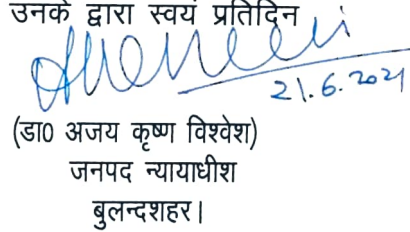 उनके द्वारा स्वयं प्रतिदिन
21.6.2021
(डा0 अजय कृष्ण विश्वेश)
जनपद न्यायाधीश
बुलन्दशहर।